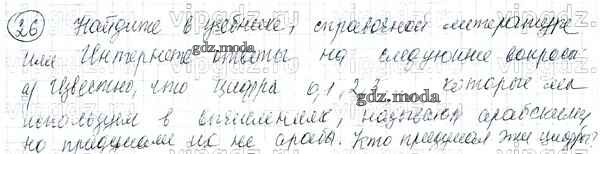 26 Найдите в учебнике, справочной литературе
или Интернете ответы на следующие вопросы
а) Известно, что цифра 0,1,2,3 которые мы
используем в вычислениях, называют арабскими
но придумали их не арабы. Кто придумал эти цифры?
gdz.moda
gdz.moda
gdz.moda